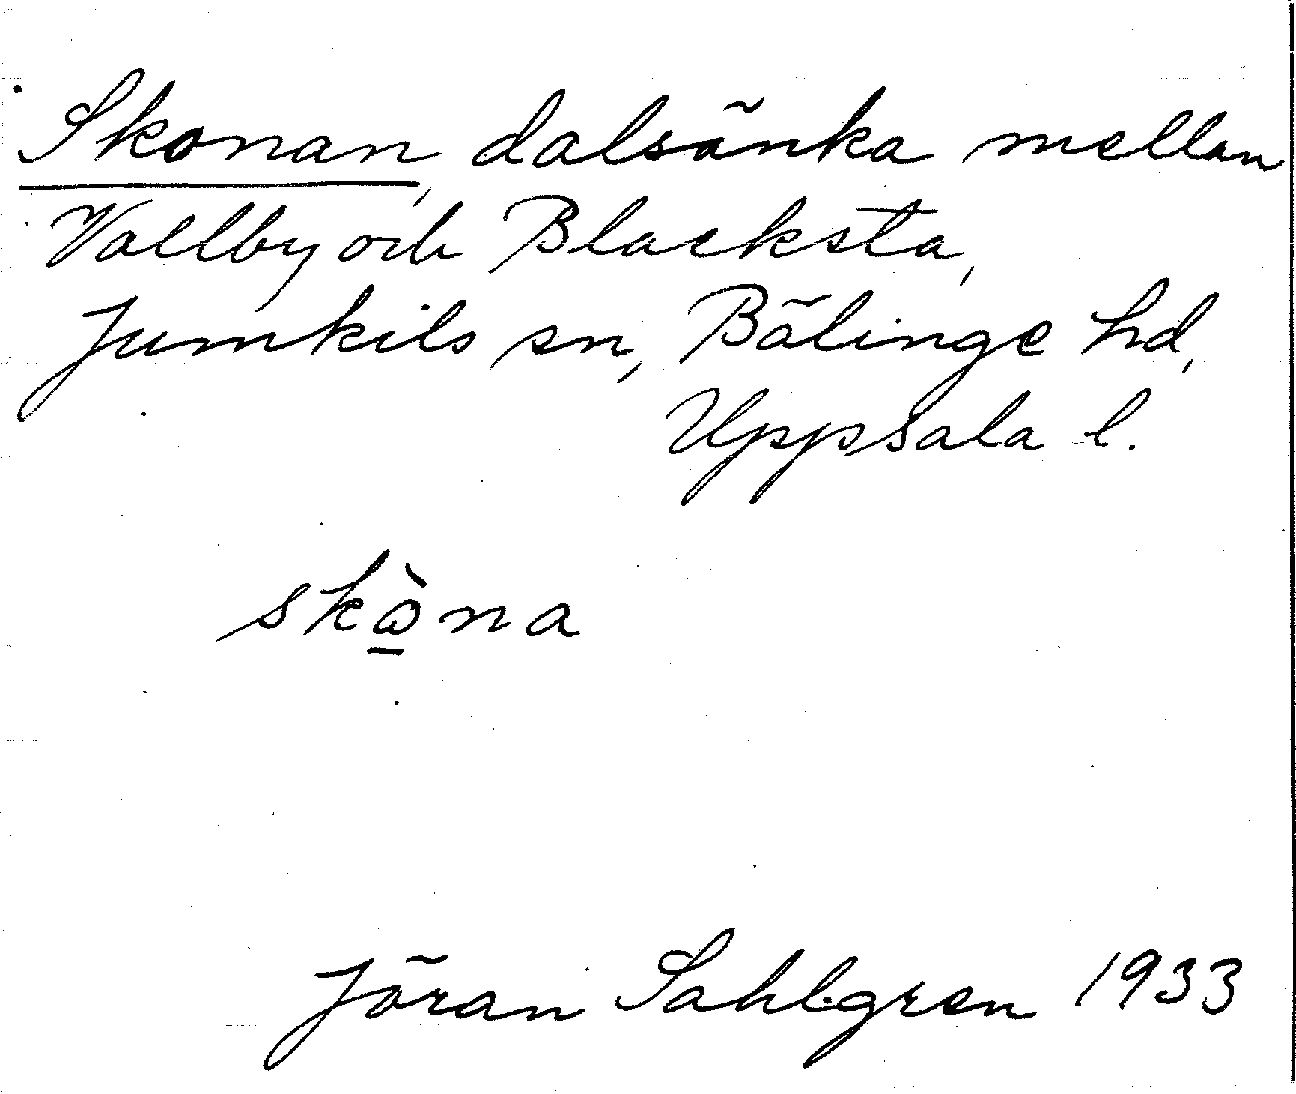 Skonan, dalsänka mellan
Vallby och Blacksta,
Jumkils sn, Bälinge hd,
Uppsala l.
skὼ̲na
Jöran Sahlgren 1933